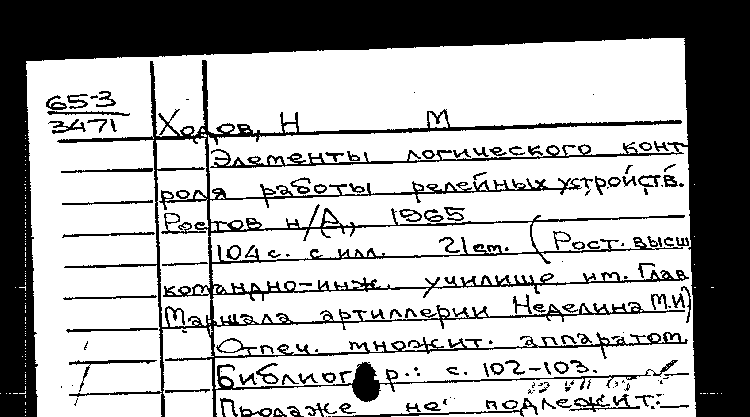 65-3
3471
Ходов, Н М
Элементы логического конт-
роля работы релейных устройств.
Ростов н/Д, 1965
104 с. с илл. 21 см. (Рост. высш
командно-инж. училище им. Глав
Маршала артиллерии Неделина М.И)
Отпеч. множит. аппаратом
Библиогр.: с. 102-103.
Продаже не подлежит.